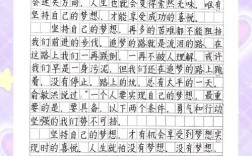 会迷失方向，人生也就会变得索然无味，唯有
坚持自己的梦想，才能享受成功的喜悦。
坚持自己的梦想，再多的苦难都不能阻挡
我们前进的步伐。追梦的路就是泥泞的路，在
这路上我们一再跌倒，一再不被人理解，或许
我们早是一身污泥，但我们还在追梦的路上跑
着，没有停下，永不停下，在追梦的路上，
俞敏洪说过："一个人要实现自己的梦想，最重
要的是，要具备，以下两个条件，勇气和行动
坚强的我们势不可挡。
坚持自己的梦想，才有机会享受到梦想实
现时的喜悦，人生就怕没有梦想，没有梦想，